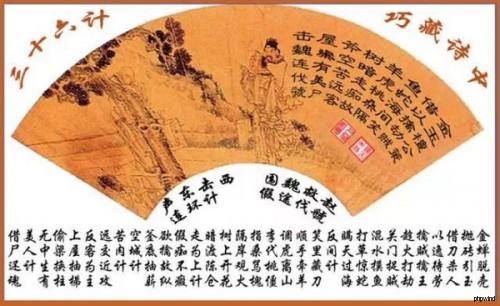 三十六计
巧藏诗中
金玉檀公策
借以擒劫贼
鱼蛇海间笑
羊虎桃桑隔
树暗走痴故
釜空苦远客
屋梁有美尸
击魏连伐虢
声东击西
围魏救赵
连环计
假途伐虢
金蝉脱壳
抛砖引玉
借刀杀人
以逸待劳
擒贼擒王
趁火打劫
关门捉贼
混水摸鱼
打草惊蛇
瞒天过海
反间计
笑里藏刀
顺手牵羊
调虎离山
李代桃僵
指桑骂槐
隔岸观火
树上开花
暗渡陈仓
走为上计
假痴不癫
欲擒故纵
釜底抽薪
空城计
苦肉计
远交近攻
反客为主
上屋抽梯
偷梁换柱
无中生有
美人计
借尸还魂
phpwind